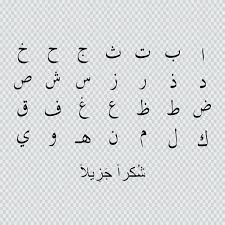 ا ب ت ث ج ح خ
د ذ ر ز س ش ص
ض ط ظ ع غ ف ق
ك ل م ن هـ و ي
شكراً جزيلاً